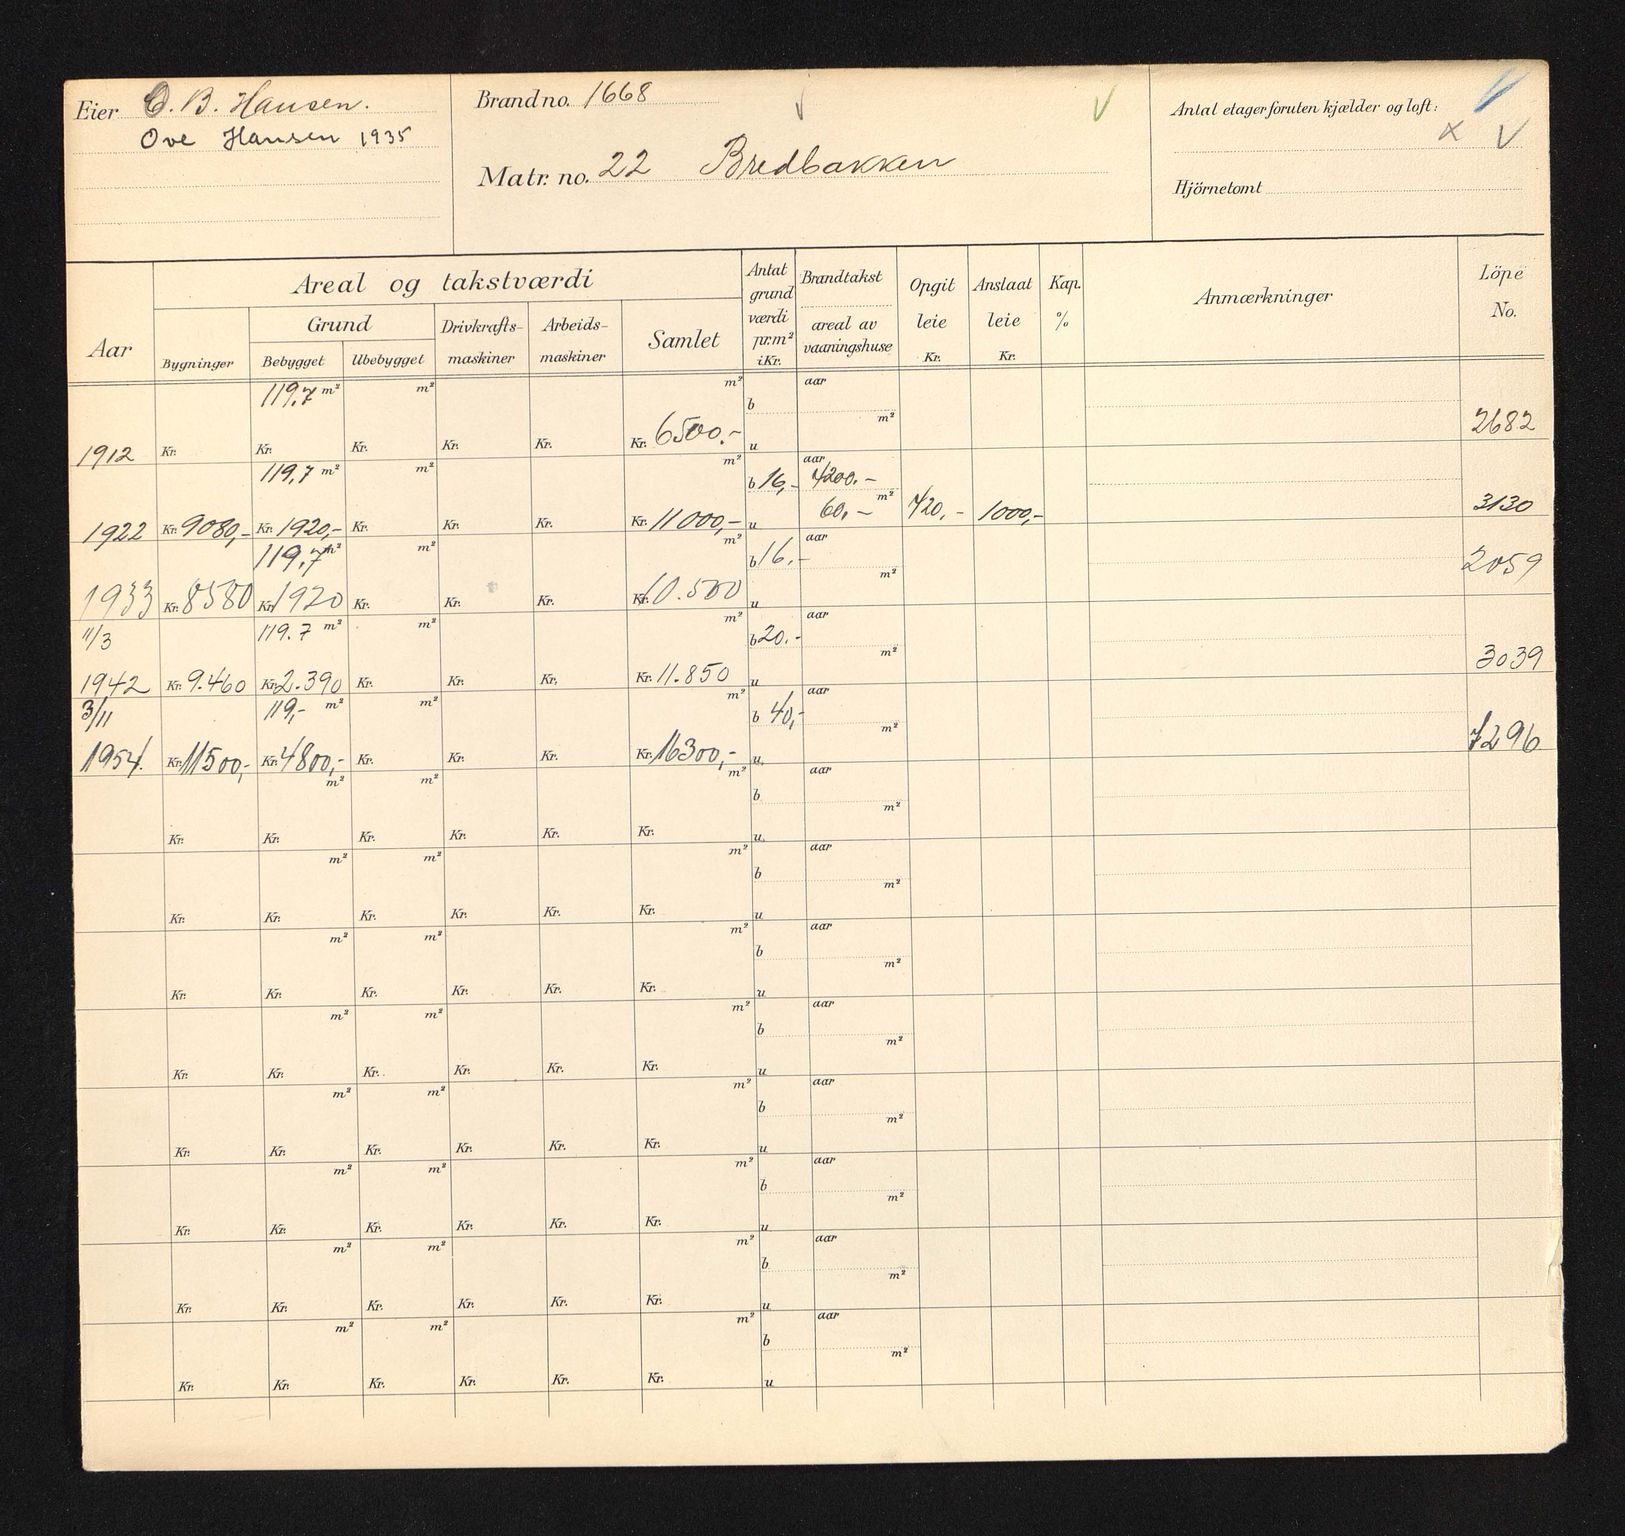 Eier O. B. Hansen.
Ove Hansen 1935
Brand no. 1668
Matr. no. 22 Bredbakken
Antal etager foruten kjælder og loft:
Hjörnetomt
Aar
Areal og takstværdi
Bygninger
Grund
Bebygget
Ubebygget
Drivkrafts-
maskiner
Arbeids-
maskiner
Samlet
Antat
grund
værdi
pr.m²
i Kr.
Brandtakst
areal av
vaaningshuse
Opgit
leie
Kr.
Anslaat
leie
Kr.
Kap.
%
Anmærkninger
Löpe
No.
119.7 m² m² m² aar
b m²
1912 Kr. Kr. Kr. Kr. Kr. Kr. 6500.- u 2682
119,7 m² m² m² aar
b 16,- 7200.-
m²
1922 Kr. 9080,- Kr. 1920,- Kr. Kr. Kr. Kr. 11000,- u 60.- 720,- 1000,- 3130
119,7 m² m² m² aar
b 16,- m²
1933 Kr. 8580 Kr. 1920 Kr. Kr. Kr. Kr. 10.500 u 2059
11/3 119.7 m² m² m² aar
b 20.- m²
1942 Kr. 9.460 Kr. 2.390 Kr. Kr. Kr. Kr. 11.850 u 3039
3/11 119,- m² m² m² aar
b 40,- m²
1954. Kr. 11500,- Kr. 4800,- Kr. Kr. Kr. Kr. 16300,- u 7296
m² m² m² aar
b m²
Kr. Kr. Kr. Kr. Kr. Kr. u
m² m² m² aar
b m²
Kr. Kr. Kr. Kr. Kr. Kr. u
m² m² m² aar
b m²
Kr. Kr. Kr. Kr. Kr. Kr. u
m² m² m² aar
b m²
Kr. Kr. Kr. Kr. Kr. Kr. u
m² m² m² aar
b m²
Kr. Kr. Kr. Kr. Kr. Kr. u
m² m² m² aar
b m²
Kr. Kr. Kr. Kr. Kr. Kr. u
m² m² m² aar
b m²
Kr. Kr. Kr. Kr. Kr. Kr. u
m² m² m² aar
b m²
Kr. Kr. Kr. Kr. Kr. Kr. u